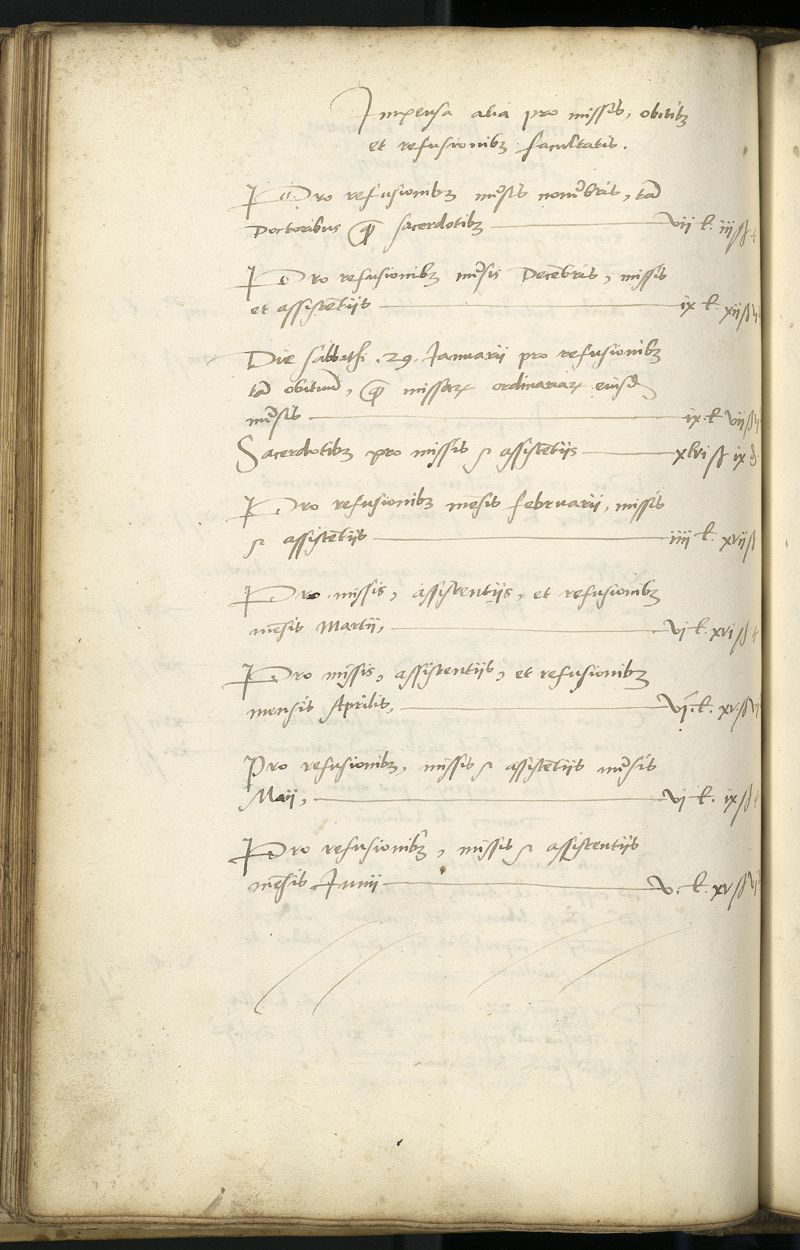 Impensa alia pro missis, obitibꝫ
et refusionibꝫ facultatis.
Pro refusionibꝫ mẽsis novẽbris, tã
Doctoribus ꝙ̃ sacerdotibꝫ vii l. iii ß
Pro refusionibꝫ mẽsis Decẽbris, missis
et assistẽtiis ix l. xii ß
Die sabbathi .29. Ianuarii pro refusionibꝫ
tã obituũ, ꝙ̃ missarꝝ ordinariarꝝ eiusd̃
mẽsis ix l. vii ß
Sacerdotibꝫ pro missis ⁊ assistẽtiis xlvi ß ix d
Pro refusionibꝫ mẽsis februarii, missis
⁊ assistẽtiis iiii l. xvii ß
Pro missis, assistentiis, et refusionibꝫ
mẽsis Martii, vi l. xvi ß
Pro missis, assistentiis, et refusionibꝫ
mensis Aprilis, vi. l. xv ß
Pro refusionibꝫ, missis ⁊ assistẽtiis mẽsis
Maii, vi l. ix ß
Pro refusionibꝫ, missis ⁊ assistentiis
mẽsis Iunii v. l. xv ß